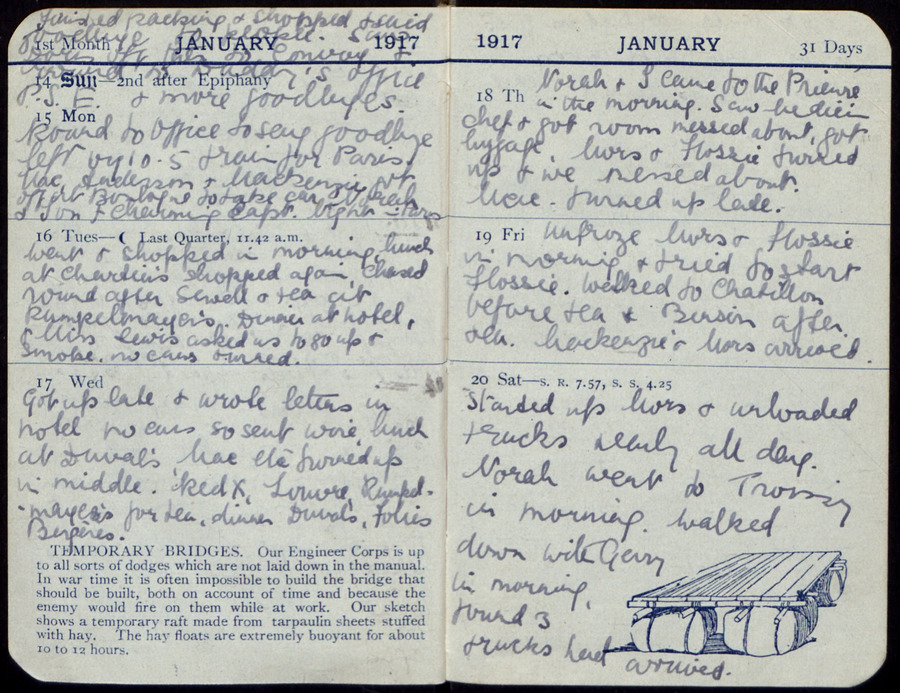 finished packing & shopped & said
goodbye to people.
1st Month JANUARY 1917
round to Daddy's office
14 Sun—2nd after Epiphany
P.S.E. & more goodbyes.
15 Mon
Round to Office to say goodbye
left by 10.5 train for Paris.
Mac, Anderson & Mackenzie got
off at Boulogne to take cars. Norah
& I on & charming Capt. Night – Paris
16 Tues—☾ Last Quarter, 11.42 a.m.
Went & shopped in morning, lunch
at Chardin's shopped again, chased
round after Sewell & tea at
Rumpelmayer's. Dinner at hotel,
Miss Lewis asked us to go up &
smoke. no cars turned.
17 Wed
Got up late & wrote letters in
hotel no cars so sent wire, lunch
at Duval's Mac etc turned up
in middle. Red X, Louvre, Rumpel-
-mayer's for tea, dinner Duvals, Folies
Bergères.
TEMPORARY BRIDGES. Our Engineer Corps is up
to all sorts of dodges which are not laid down in the manual.
In war time it is often impossible to build the bridge that
should be built, both on account of time and because the
enemy would fire on them while at work. Our sketch
shows a temporary raft made from tarpaulin sheets stuffed
with hay. The hay floats are extremely buoyant for about
10 to 12 hours.
1917 JANUARY 31 Days
Norah & I came to the Prieure
18 Th in the morning. Saw médecin
chef & got room messed about, got
luggage. Mors & Flossie turned
up & we messed about.
Mac. turned up late.
19 Fri Unfroze Mors & Flossie
in morning & tried to start
Flossie. Walked to Chatillon
before tea & Binson after
tea. Mackenzie & Mors arrived.
20 Sat—S. R. 7.57, S. S. 4.25
Started up Mors & unloaded
trucks nearly all day.
Norah went to Troissy
in morning. Walked
down with Gerry
in morning,
found 3
trucks had arrived.